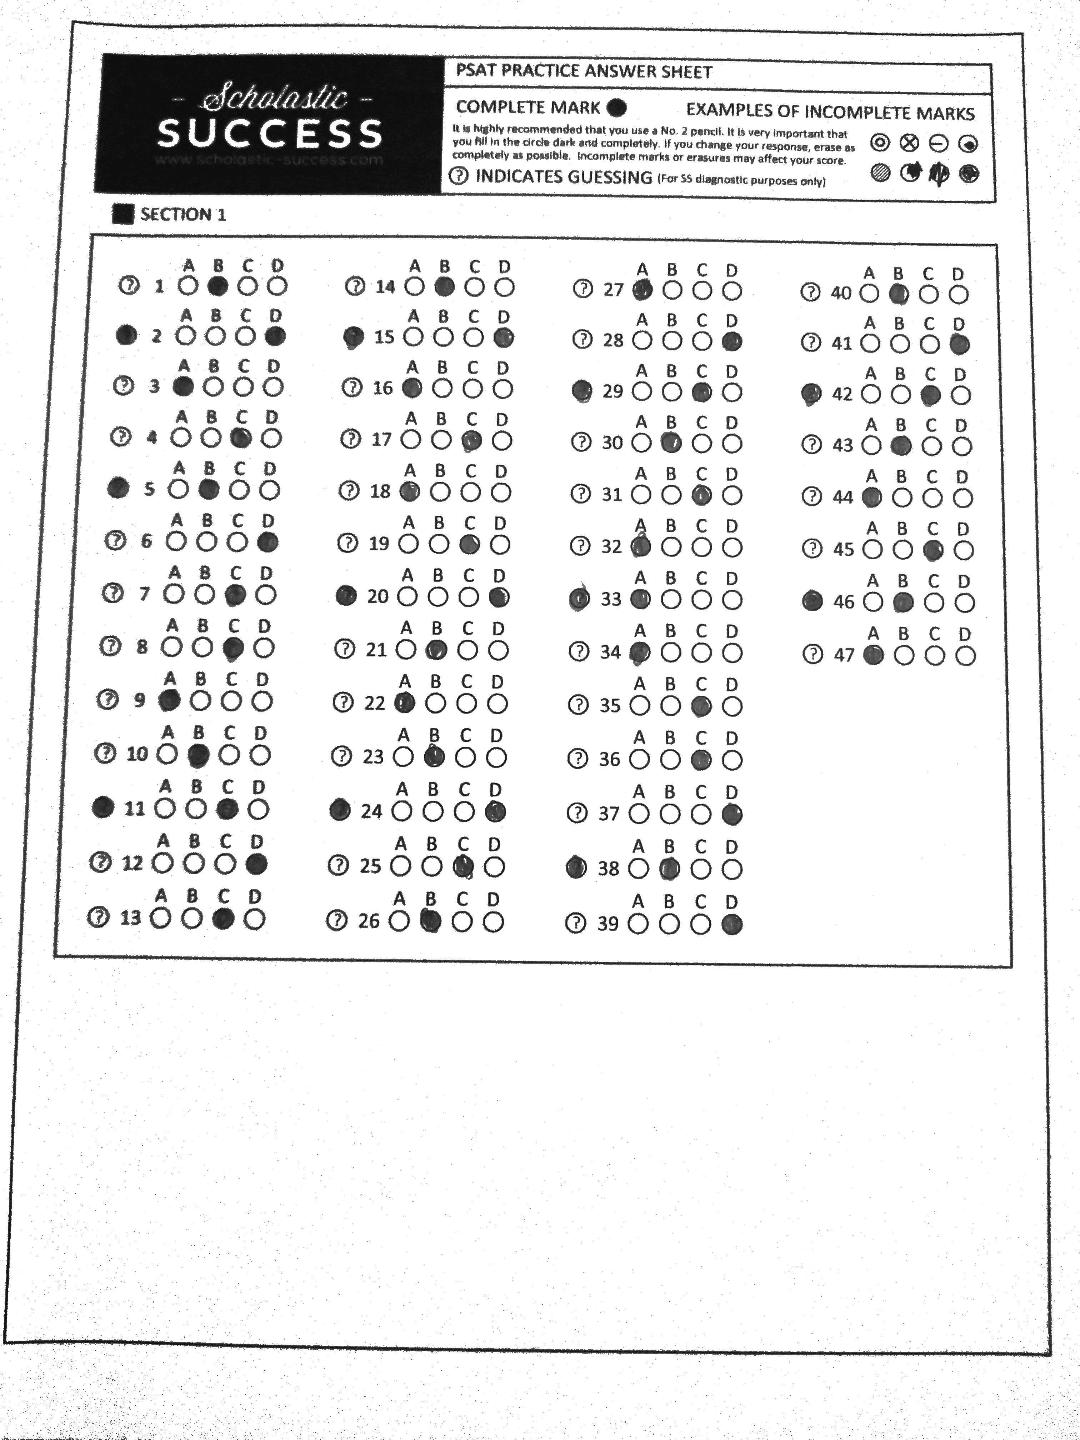 - Scholastic -
SUCCESS
www.scholastic-success.com
PSAT PRACTICE ANSWER SHEET
COMPLETE MARK
EXAMPLES OF INCOMPLETE MARKS
It is highly recommended that you use a No. 2 pencil. It is very important that
you fill in the circle dark and completely. If you change your response, erase as
completely as possible. Incomplete marks or erasures may affect your score.
? INDICATES GUESSING (For SS diagnostic purposes only)
SECTION 1
A B C D
? 1
A B C D
2
A B C D
? 3
A B C D
? 4
A B C D
5
A B C D
? 6
A B C D
? 7
A B C D
? 8
A B C D
? 9
A B C D
? 10
A B C D
11
A B C D
? 12
A B C D
? 13
A B C D
? 14
A B C D
15
A B C D
? 16
A B C D
? 17
A B C D
? 18
A B C D
? 19
A B C D
20
A B C D
? 21
A B C D
? 22
A B C D
? 23
A B C D
24
A B C D
? 25
A B C D
? 26
A B C D
? 27
A B C D
? 28
A B C D
29
A B C D
? 30
A B C D
? 31
A B C D
? 32
A B C D
33
A B C D
? 34
A B C D
? 35
A B C D
? 36
A B C D
? 37
A B C D
38
A B C D
? 39
A B C D
? 40
A B C D
? 41
A B C D
42
A B C D
? 43
A B C D
? 44
A B C D
? 45
A B C D
46
A B C D
? 47